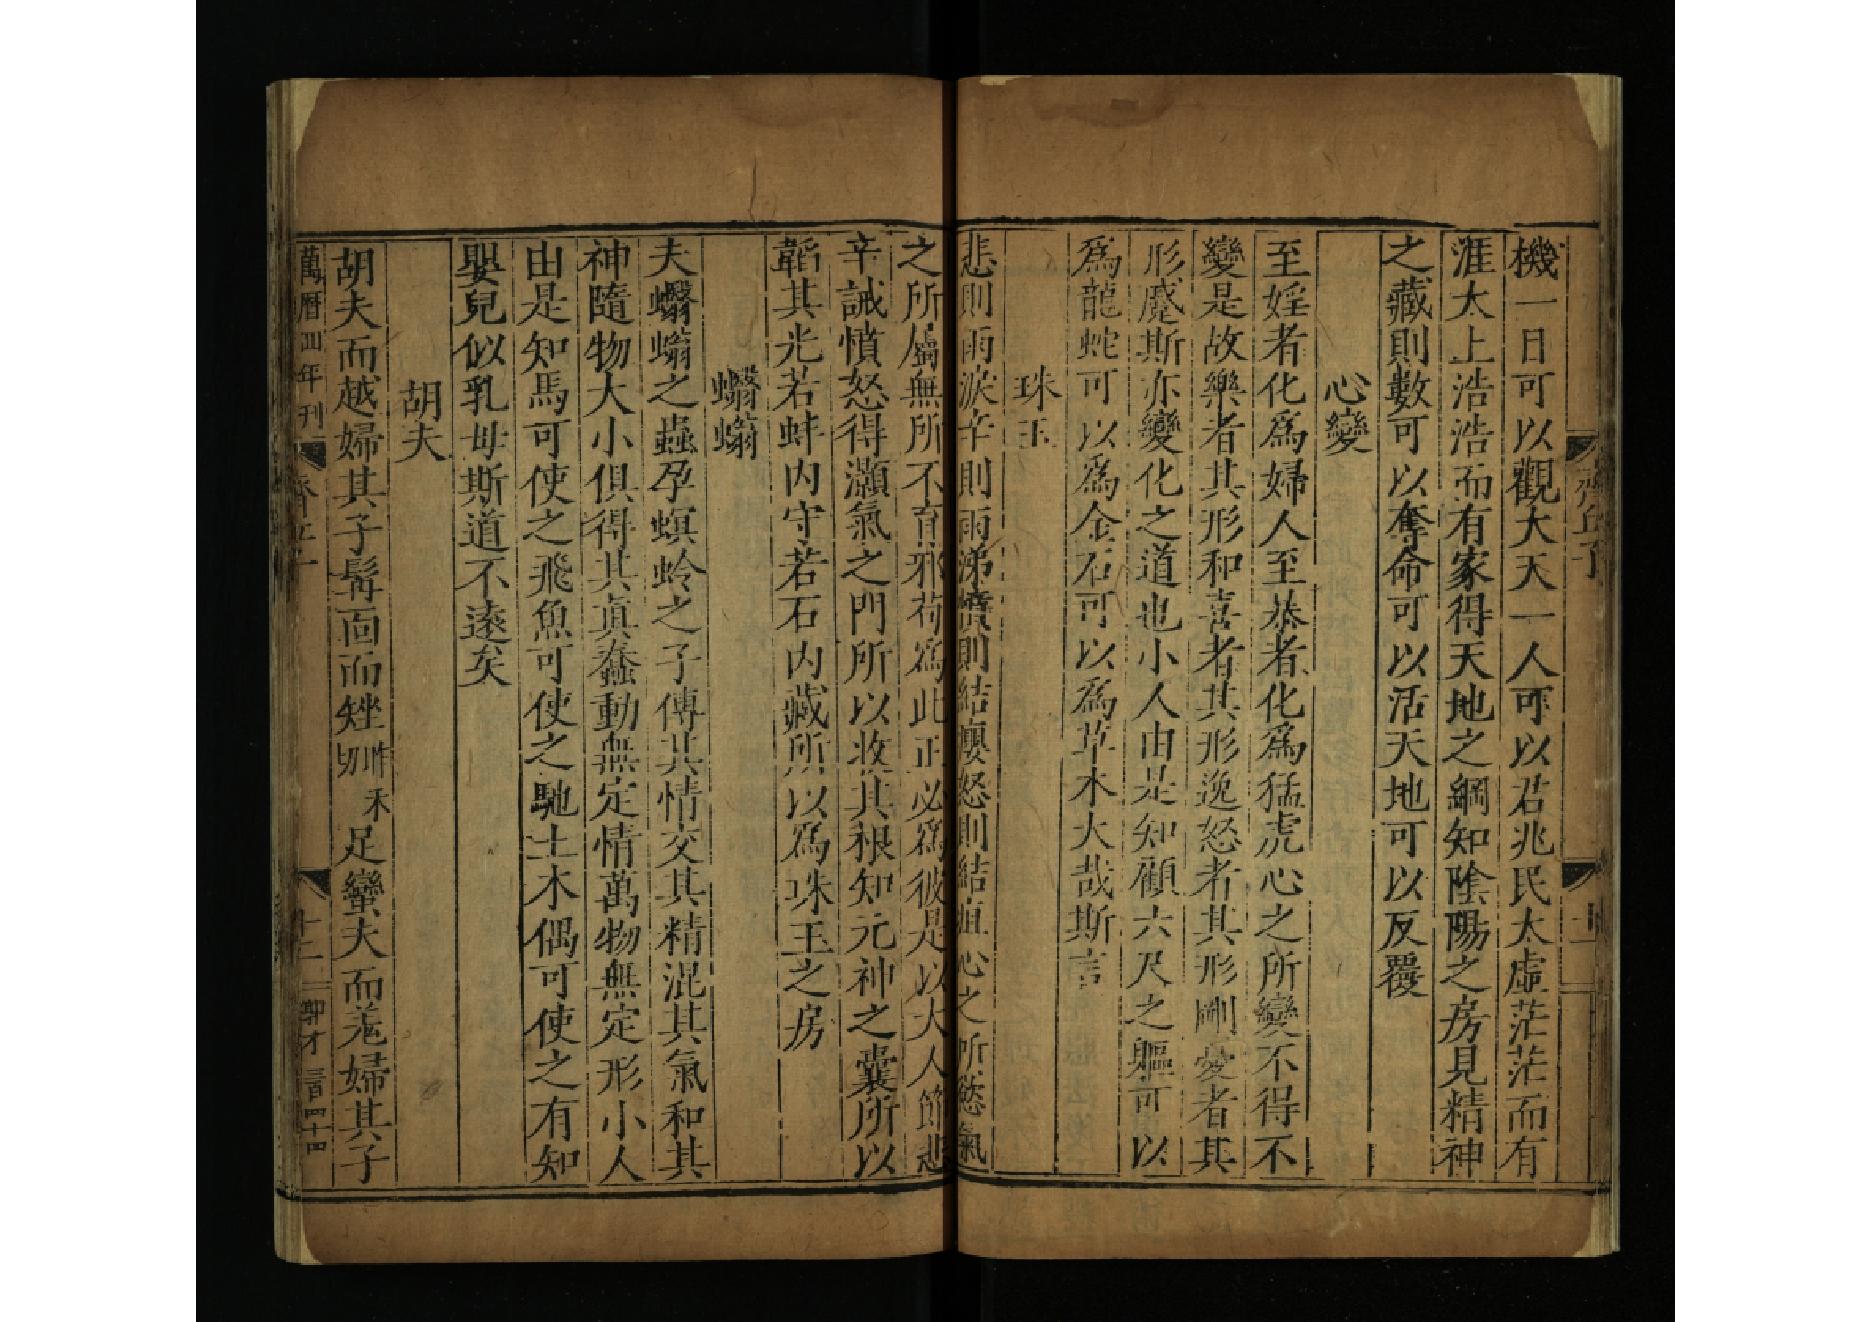 齊丘子
十一
機一日可以觀大天一人可以君兆民太虛茫茫而有
涯太上浩浩而有家得天地之綱知陰陽之房見精神
之藏則數可以奪命可以活天地可以反覆
心變
至婬者化爲婦人至恭者化爲猛虎心之所變不得不
變是故樂者其形和喜者其形逸怒者其形剛憂者其
形慼斯亦變化之道也小人由是知顧六尺之軀可以
爲龍蛇可以爲金石可以爲草木大哉斯言
珠玉
悲則雨淚辛則雨涕憤則結癭怒則結疽心之所慾氣
之所屬無所不育邪苟爲此正必爲彼是以大人節悲
辛誡憤怒得灝氣之門所以收其根知元神之囊所以
韜其光若蚌内守若石内藏所以爲珠玉之房
蠮螉
夫蠮螉之蟲孕螟蛉之子傳其情交其精混其氣和其
神隨物大小俱得其眞蠢動無定情萬物無定形小人
由是知馬可使之飛魚可使之馳土木偶可使之有知
嬰兒似乳母斯道不遠矣
胡夫
胡夫而越婦其子髯面而矬昨禾切足蠻夫而羗婦其子
萬曆四年刊
齊丘子
十二
郭才 三百四十四